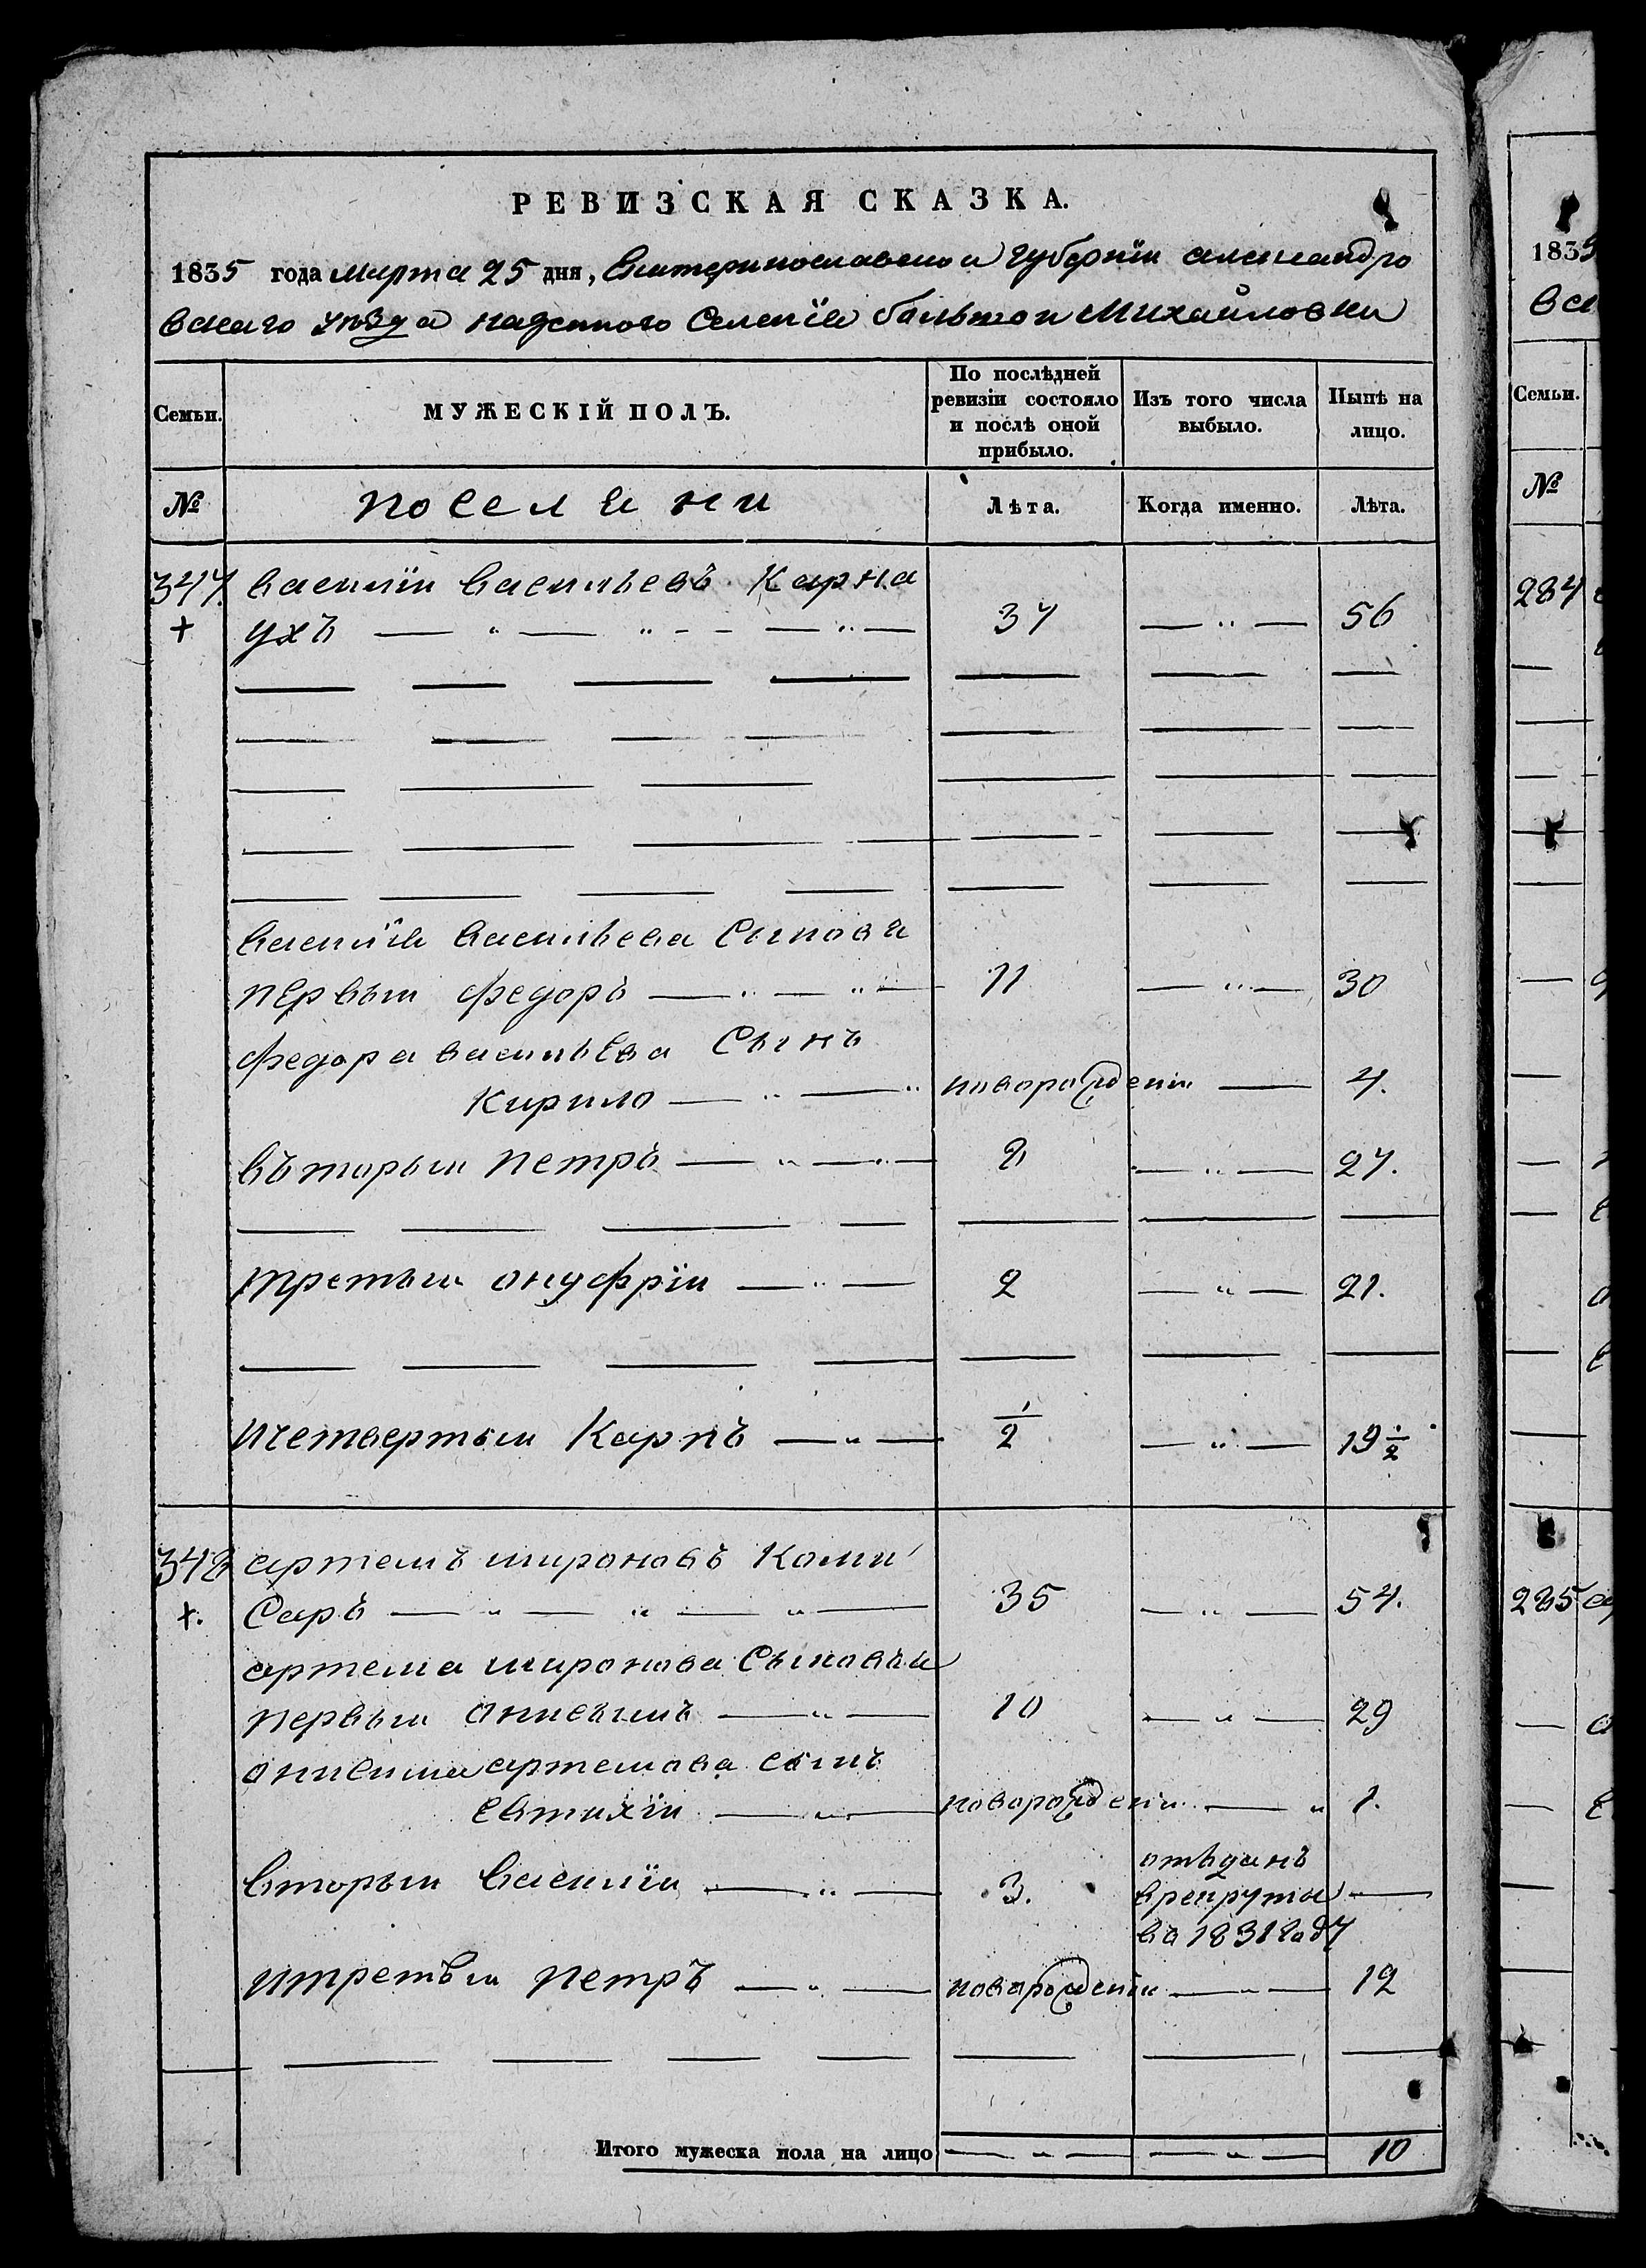 РЕВИЗСКАЯ СКАЗКА.
1835 года марта 25 дня, Екатеринославскои губернїи александро
вскаго уѣзда казенного Селенїя большои Михаиловки
Семьи.
МУЖЕСКІЙ ПОЛЪ.
По послѣдней ревизіи состояло и послѣ оной прибыло.
Изъ того числа выбыло.
Нынѣ на лицо.
№
поселяни
Лѣта.
Когда именно.
Лѣта.
347. василїи васильевъ Карна
+ ухъ 37 56
василїя васильева Сыновя
первыи федоръ 11 30
федора васильева Сынъ
Кирило новорожденıи 4.
въторыи петръ 8 27.
третыи онуфрїи 2 21.
ичетвертыи Карпъ 1/2 19 1/2
348 артемъ мироновъ Коми
+. Саръ 35 54.
артема миронова Сыновъя
первыи онисимъ 10 29
онисима артемова сынъ
евтихїи новорожденıи 1.
вторыи василїи 3. отъданъ
врекруты
во 1831 году
итретыи петръ новорожденıи 12
Итого мужеска пола на лицо 10
1835
вск
Семьи.
№
284
285